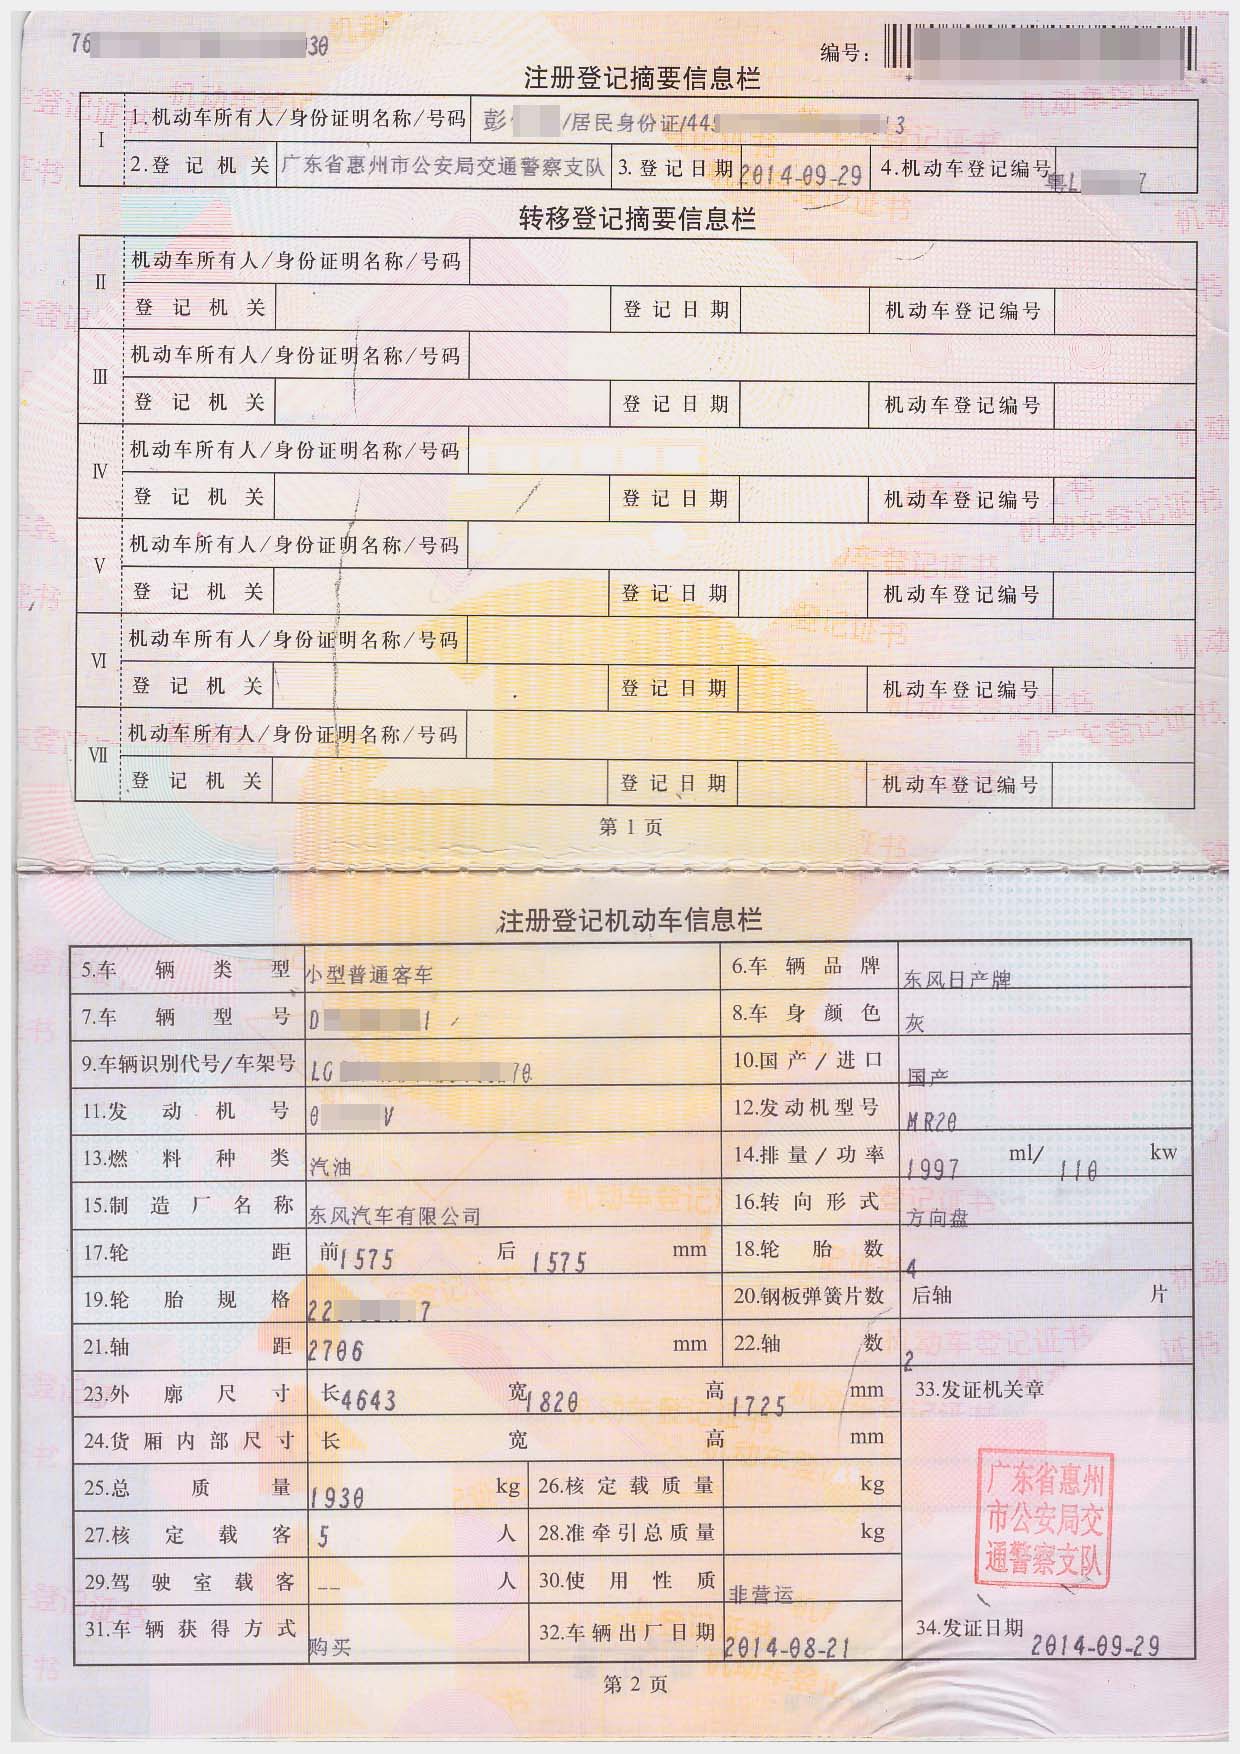 编号：
注册登记摘要信息栏
I 1.机动车所有人/身份证明名称/号码 彭 /居民身份证/44
2.登记机关 广东省惠州市公安局交通警察支队 3.登记日期 2014-09-29 4.机动车登记编号 粤L 7
转移登记摘要信息栏
II 机动车所有人/身份证明名称/号码
登记机关 登记日期 机动车登记编号
III 机动车所有人/身份证明名称/号码
登记机关 登记日期 机动车登记编号
IV 机动车所有人/身份证明名称/号码
登记机关 登记日期 机动车登记编号
V 机动车所有人/身份证明名称/号码
登记机关 登记日期 机动车登记编号
VI 机动车所有人/身份证明名称/号码
登记机关 登记日期 机动车登记编号
VII 机动车所有人/身份证明名称/号码
登记机关 登记日期 机动车登记编号
第 1 页
注册登记机动车信息栏
5.车辆类型 小型普通客车 6.车辆品牌 东风日产牌
7.车辆型号 D 1 8.车身颜色 灰
9.车辆识别代号/车架号 LG 70 10.国产/进口 国产
11.发动机号 0 V 12.发动机型号 MR20
13.燃料种类 汽油 14.排量/功率 1997 ml/ 110 kw
15.制造厂名称 东风汽车有限公司 16.转向形式 方向盘
17.轮距 前1575 后 1575 mm 18.轮胎数 4
19.轮胎规格 22 7 20.钢板弹簧片数 后轴 片
21.轴距 2706 mm 22.轴数 2
23.外廓尺寸 长4643 宽1820 高1725 mm 33.发证机关章
24.货厢内部尺寸 长 宽 高 mm
25.总质量 1930 kg 26.核定载质量 kg
广东省惠州
市公安局交
通警察支队
27.核定载客 5 人 28.准牵引总质量 kg
29.驾驶室载客 -- 人 30.使用性质 非营运
31.车辆获得方式 购买 32.车辆出厂日期 2014-08-21 34.发证日期 2014-09-29
第 2 页